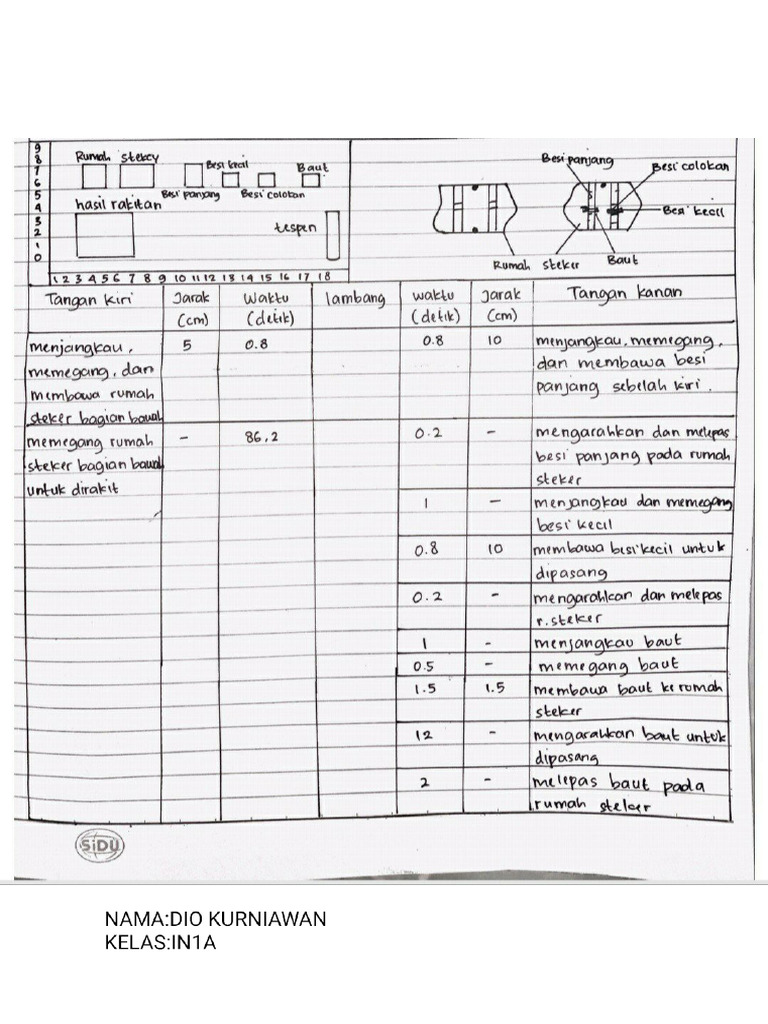 9
8
7
6
5
4
3
2
1
0
Rumah steker
Besi kecil
Baut
Besi panjang
Besi colokan
hasil rakitan
tespen
1 2 3 4 5 6 7 8 9 10 11 12 13 14 15 16 17 18
Besi panjang
Besi colokan
Besi kecil
Baut
Rumah steker
Tangan kiri Jarak (cm) Waktu (detik) lambang waktu (detik) Jarak (cm) Tangan kanan
menjangkau, 5 0.8 0.8 10 menjangkau, memegang,
memegang, dan dan membawa besi
membawa rumah panjang sebelah kiri.
steker bagian bawah
memegang rumah - 86,2 0.2 - mengarahkan dan melepas
steker bagian bawah besi panjang pada rumah
untuk dirakit steker
1 - menjangkau dan memegang
besi kecil
0.8 10 membawa besi kecil untuk
dipasang
0.2 - mengarahkan dan melepas
r.steker
1 - menjangkau baut
0.5 - memegang baut
1.5 1.5 membawa baut ke rumah
steker
12 - mengarahkan baut untuk
dipasang
2 - melepas baut pada
rumah steker
SiDU
NAMA:DIO KURNIAWAN
KELAS:IN1A